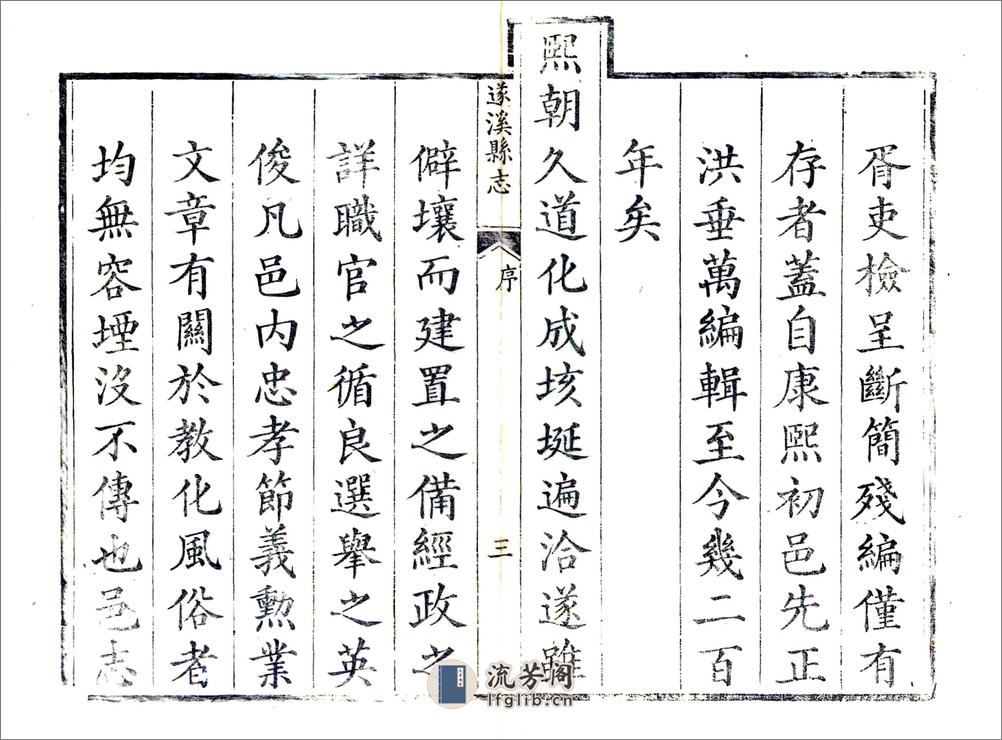 胥吏檢呈斷簡殘編僅有
存者蓋自康熙初邑先正
洪垂萬編輯至今幾二百
年矣
熙朝久道化成垓埏遍洽遂雖
遂溪縣志
序
三
僻壤而建置之備經政之
詳職官之循良選擧之英
俊凡邑內忠孝節義勲業
文章有關於教化風俗者
均無容堙沒不傳也邑志
流芳阁
lfglib.cn